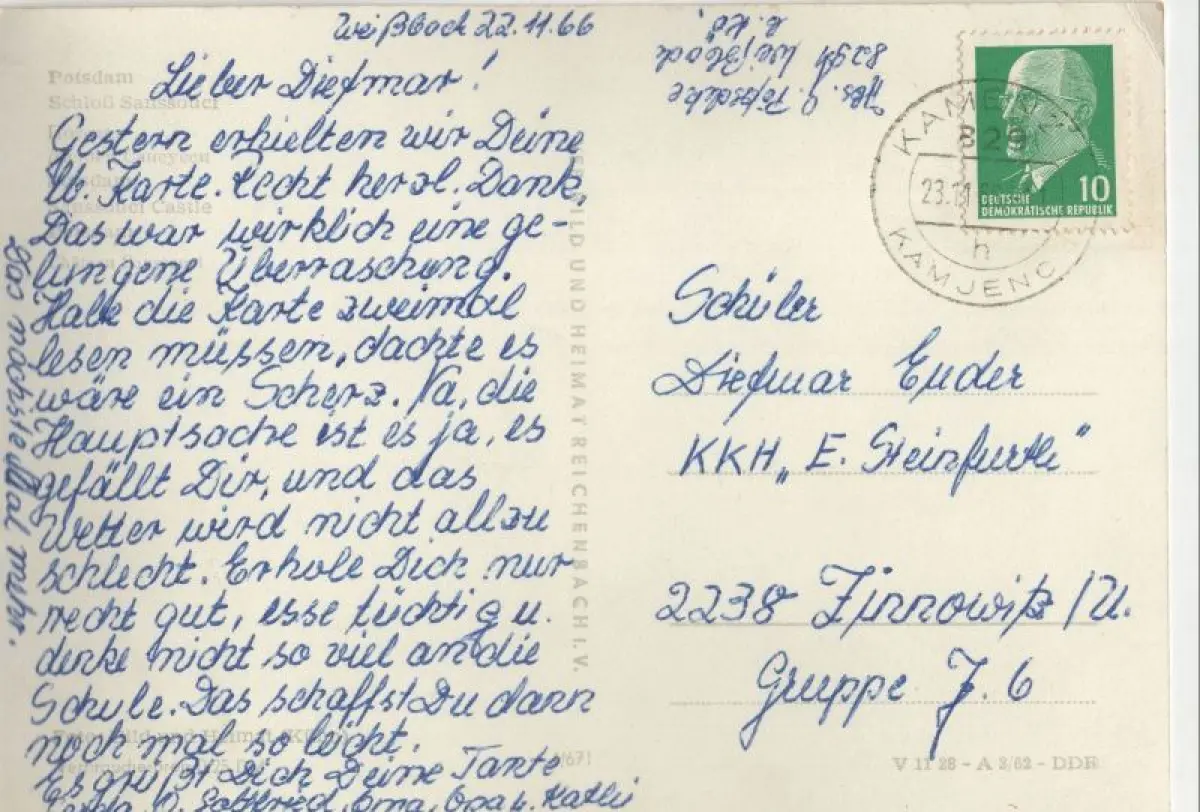 Weißbach 22.11.66
Lieber Dietmar!
Gestern erhielten wir Deine
lb. Karte. Recht herzl. Dank,
Das war wirklich eine ge-
lungene Überraschung.
Habe die Karte zweimal
lesen müssen, dachte es
wäre ein Scherz. Na, die
Hauptsache ist es ja, es
gefällt Dir, und das
Wetter wird nicht allzu
schlecht. Erhole Dich nur
recht gut, esse tüchtig u.
denke nicht so viel an die
Schule. Das schaffst Du dann
noch mal so leicht.
Es grüßt Dich Deine Tante
Gottfried, Oma, Opa u. Kathi
Das nächste Mal mehr.
Abs.
8291 Weißbach
Potsdam
Schloß Sanssouci
Castle
BILD UND HEIMAT REICHENBACH I. V.
KAMENZ
829
23.11
h
KAMJENC
10
DEUTSCHE
DEMOKRATISCHE REPUBLIK
Schüler
Dietmar Ender
KKH „E. Steinfurth"
2238 Zinnowitz/U.
Gruppe J. 6
V 11 28 - A 2/62 - DDR